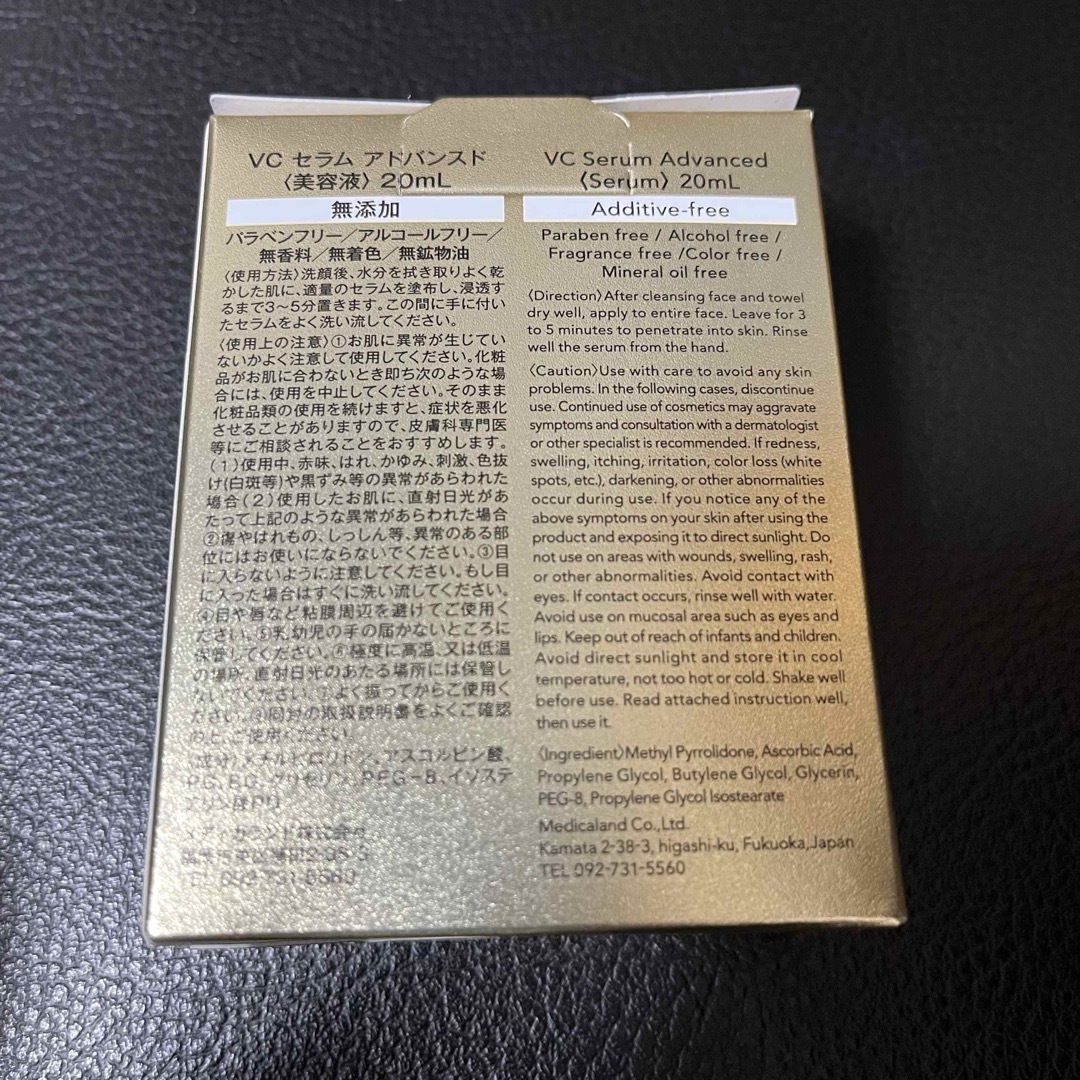 VC セラム アドバンスド
〈美容液〉 20mL
無添加
パラベンフリー／アルコールフリー／
無香料／無着色／無鉱物油
〈使用方法〉洗顔後、水分を拭き取りよく乾
かした肌に、適量のセラムを塗布し、浸透す
るまで3〜5分置きます。この間に手に付い
たセラムをよく洗い流してください。
〈使用上の注意〉①お肌に異常が生じてい
ないかよく注意して使用してください。化粧
品がお肌に合わないとき即ち次のような場
合には、使用を中止してください。そのまま
化粧品類の使用を続けますと、症状を悪化
させることがありますので、皮膚科専門医
等にご相談されることをおすすめします。
(1)使用中、赤味、はれ、かゆみ、刺激、色抜
け(白斑等)や黒ずみ等の異常があらわれた
場合(2)使用したお肌に、直射日光があ
たって上記のような異常があらわれた場合
②傷やはれもの、しっしん等、異常のある部
位にはお使いにならないでください。③目
に入らないように注意してください。もし目
に入った場合はすぐに洗い流してください。
④目や唇など粘膜周辺を避けてご使用く
ださい。⑤乳幼児の手の届かないところに
保管してください。⑥極度に高温、又は低温
の場所、直射日光のあたる場所には保管し
ないでください。⑦よく振ってからご使用く
ださい。⑧同封の取扱説明書をよくご確認
の上、ご使用ください。
〈成分〉メチルピロリドン、アスコルビン酸、
PG、BG、グリセリン、PEG-8、イソステ
アリン酸PG
メディカランド株式会社
TEL 092-731-5560
VC Serum Advanced
〈Serum〉 20mL
Additive-free
Paraben free / Alcohol free /
Fragrance free /Color free /
Mineral oil free
〈Direction〉After cleansing face and towel
dry well, apply to entire face. Leave for 3
to 5 minutes to penetrate into skin. Rinse
well the serum from the hand.
〈Caution〉Use with care to avoid any skin
problems. In the following cases, discontinue
use. Continued use of cosmetics may aggravate
symptoms and consultation with a dermatologist
or other specialist is recommended. If redness,
swelling, itching, irritation, color loss (white
spots, etc.), darkening, or other abnormalities
occur during use. If you notice any of the
above symptoms on your skin after using the
product and exposing it to direct sunlight. Do
not use on areas with wounds, swelling, rash,
or other abnormalities. Avoid contact with
eyes. If contact occurs, rinse well with water.
Avoid use on mucosal area such as eyes and
lips. Keep out of reach of infants and children.
Avoid direct sunlight and store it in cool
temperature, not too hot or cold. Shake well
before use. Read attached instruction well,
then use it.
〈Ingredient〉Methyl Pyrrolidone, Ascorbic Acid,
Propylene Glycol, Butylene Glycol, Glycerin,
PEG-8, Propylene Glycol Isostearate
Medicaland Co.,Ltd.
Kamata 2-38-3, higashi-ku, Fukuoka,Japan
TEL 092-731-5560